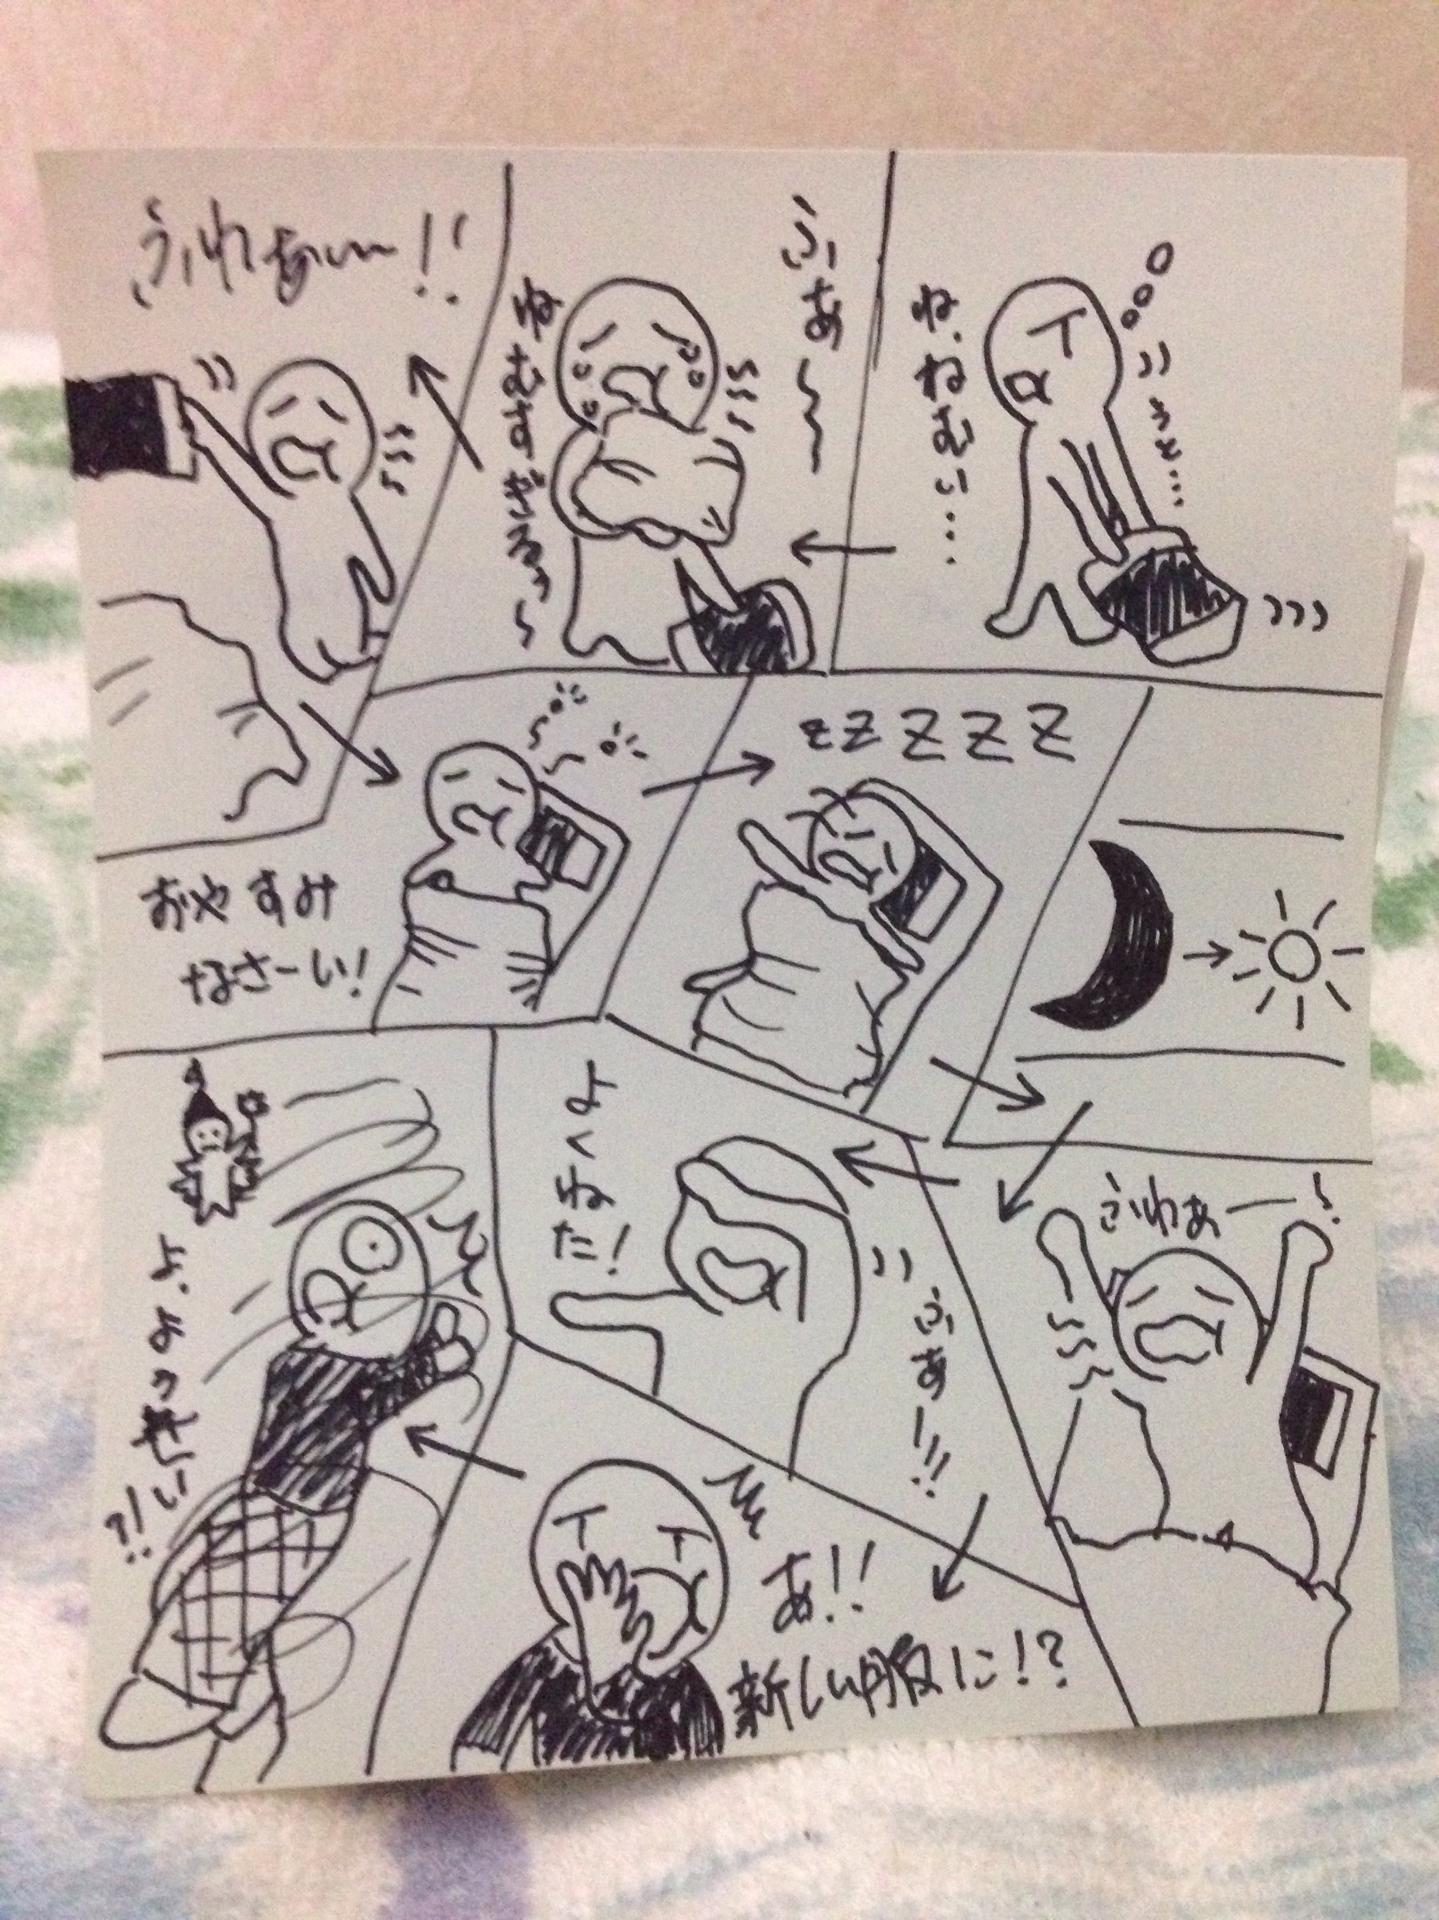 うぅ…
ね、ねむい…
ふあ〜〜
ねむすぎるっ〜
ふわぁ〜〜!!
おやすみ
なさーい!
zzZZZ
ふわぁー〜!
ふあー!!!
よくねた!
あ!!
新しい服に!?
よ、よっせい?!